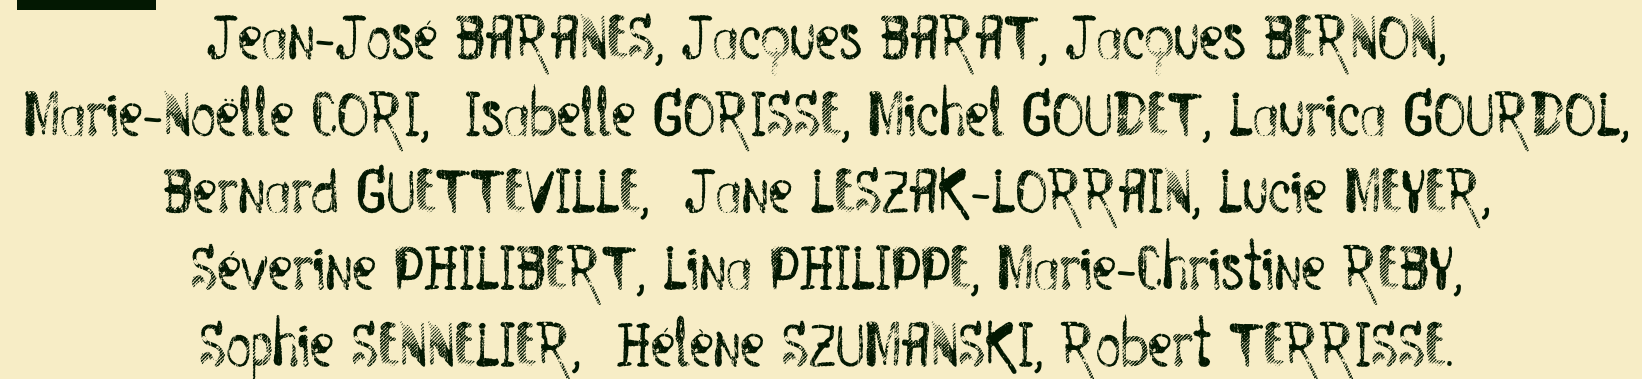 Jean-José BARANES, Jacques BARAT, Jacques BERNON,
Marie-Noëlle CORI, Isabelle GORISSE, Michel GOUDET, Laurica GOURDOL,
Bernard GUETTEVILLE, Jane LESZAK-LORRAIN, Lucie MEYER,
Séverine PHILIBERT, Lina PHILIPPE, Marie-Christine REBY,
Sophie SENNELIER, Hélène SZUMANSKI, Robert TERRISSE.